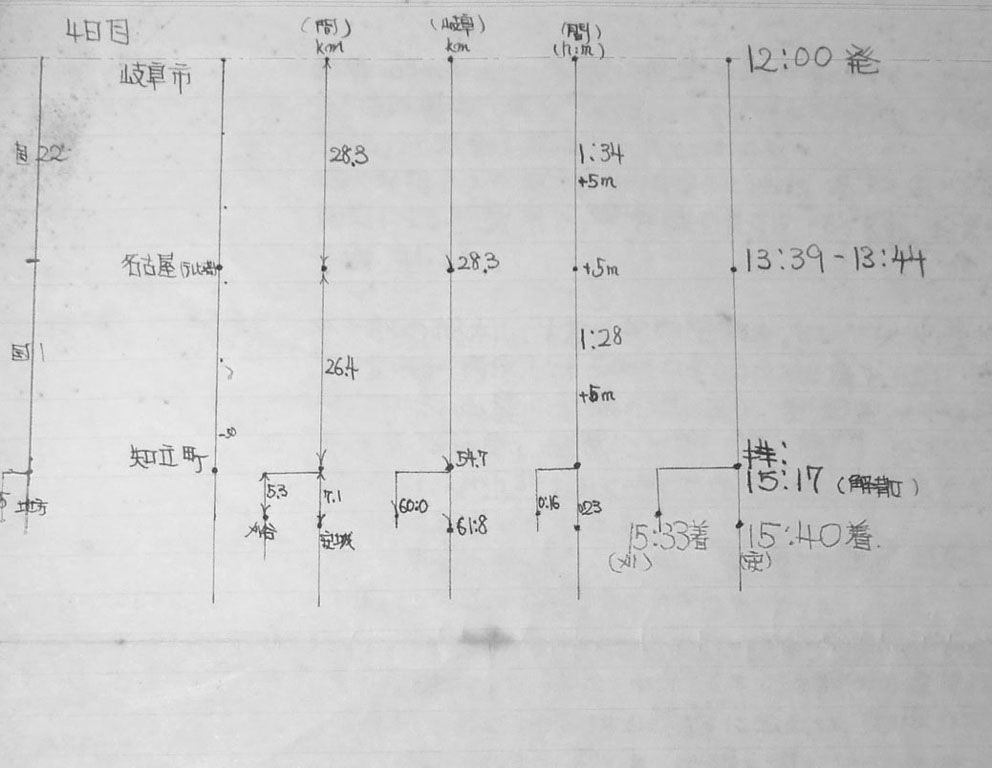 4日目
(間) km
(岐阜) km
(間) (h:m)
岐阜市
12:00 発
国 22
28.3
1:34
+5m
名古屋
28.3
+5m
13:39-13:44
国 1
1:28
26.4
+5m
知立町
54.7
15:17 (解散)
地方
5.3
7.1
60:0
0:16
0:23
刈谷
安城
61:8
15:33着
(刈)
15:40着.
(安)